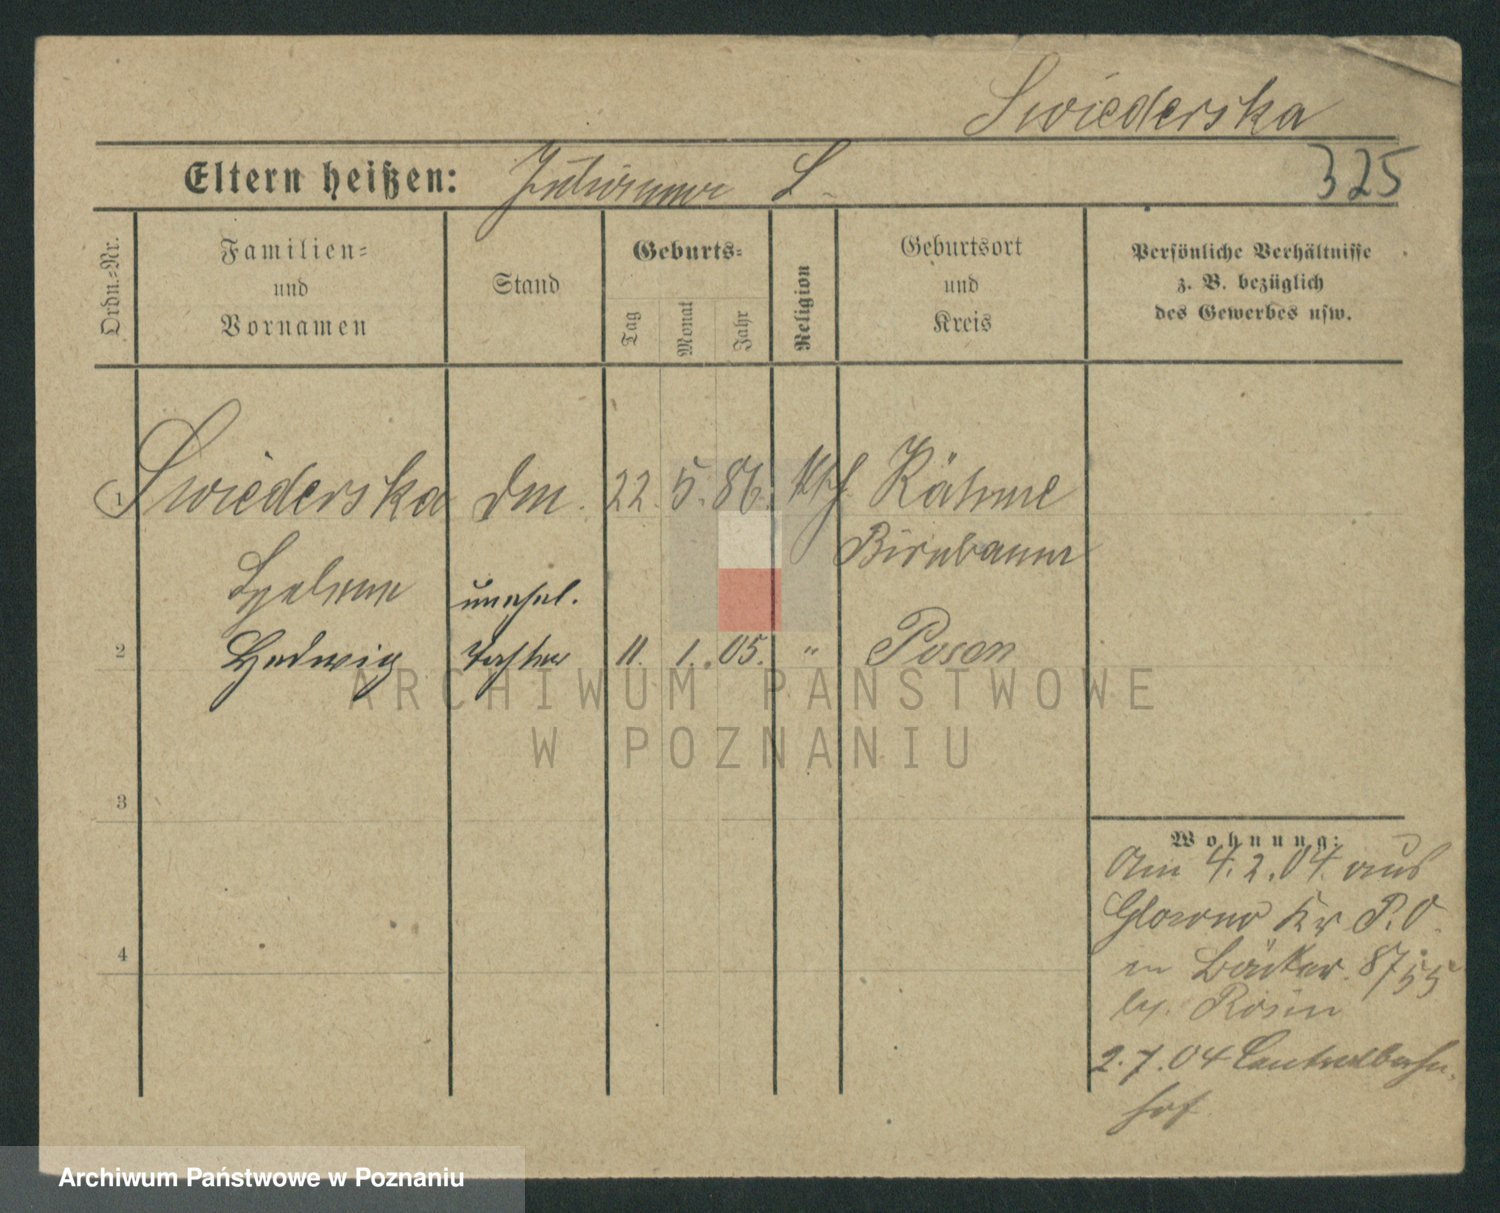 Swiederska
Eltern heißen: L.
325
Ordn.-Nr.
Familien-
und
Vornamen
Stand
Geburts-
Tag
Monat
Jahr
Religion
Geburtsort
und
Kreis
Persönliche Verhältnisse
z. B. bezüglich
des Gewerbes usw.
1 Swiederska Dm. 22. 5. 86. Kth. Kähme
Birnbaum
Helene unehel.
2 Hedwig Tochter 11. 1. 05. " Posen
3
4
Wohnung:
Am 4.2.04. aus
Glowno Kr P.O.
in Bäcker. 8755
by. Rosin
2.7.04 Centralbahn-
hof
ARCHIWUM PAŃSTWOWE
W POZNANIU
Archiwum Państwowe w Poznaniu